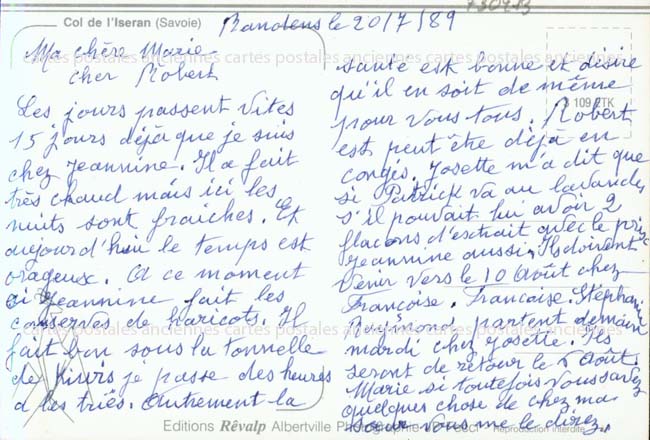 730413
Col de l'Iseran (Savoie)
Randens le 20/7/89
Ma chère Marie
cher Robert
Les jours passent vites
15 jours déjà que je suis
chez Jeannine. Il a fait
très chaud mais ici les
nuits sont fraiches. Et
aujourd'hui le temps est
orageux. A ce moment
ci Jeannine fait les
conserves de haricots. Il
fait bon sous la tonnelle
de Kiwis je passe des heures
a les triés. Autrement la
santé est bonne et désire
qu'il en soit de même
pour vous tous. Robert
est peut être déjà en
congés. Josette m'a dit que
si Patrick va au lavandes
s'il pouvait lui avoir 2
flacons d'extrait avec le prix
Jeannine aussi. Ils doivent
venir vers le 10 Août chez
Françoise. Francoise. Stéphanie
Raymond partent demain
mardi chez Josette. Ils
seront de retour le 5 Août.
Marie si toutefois vous savez
quelques chose de chez ma
soeur vous me le direz.
3 109 2TK
cartes postales anciennes cartes postales anciennes cartes postales anciennes
cartes postales anciennes cartes postales anciennes cartes postales anciennes
Editions Rêvalp Albertville
Reproduction interdite